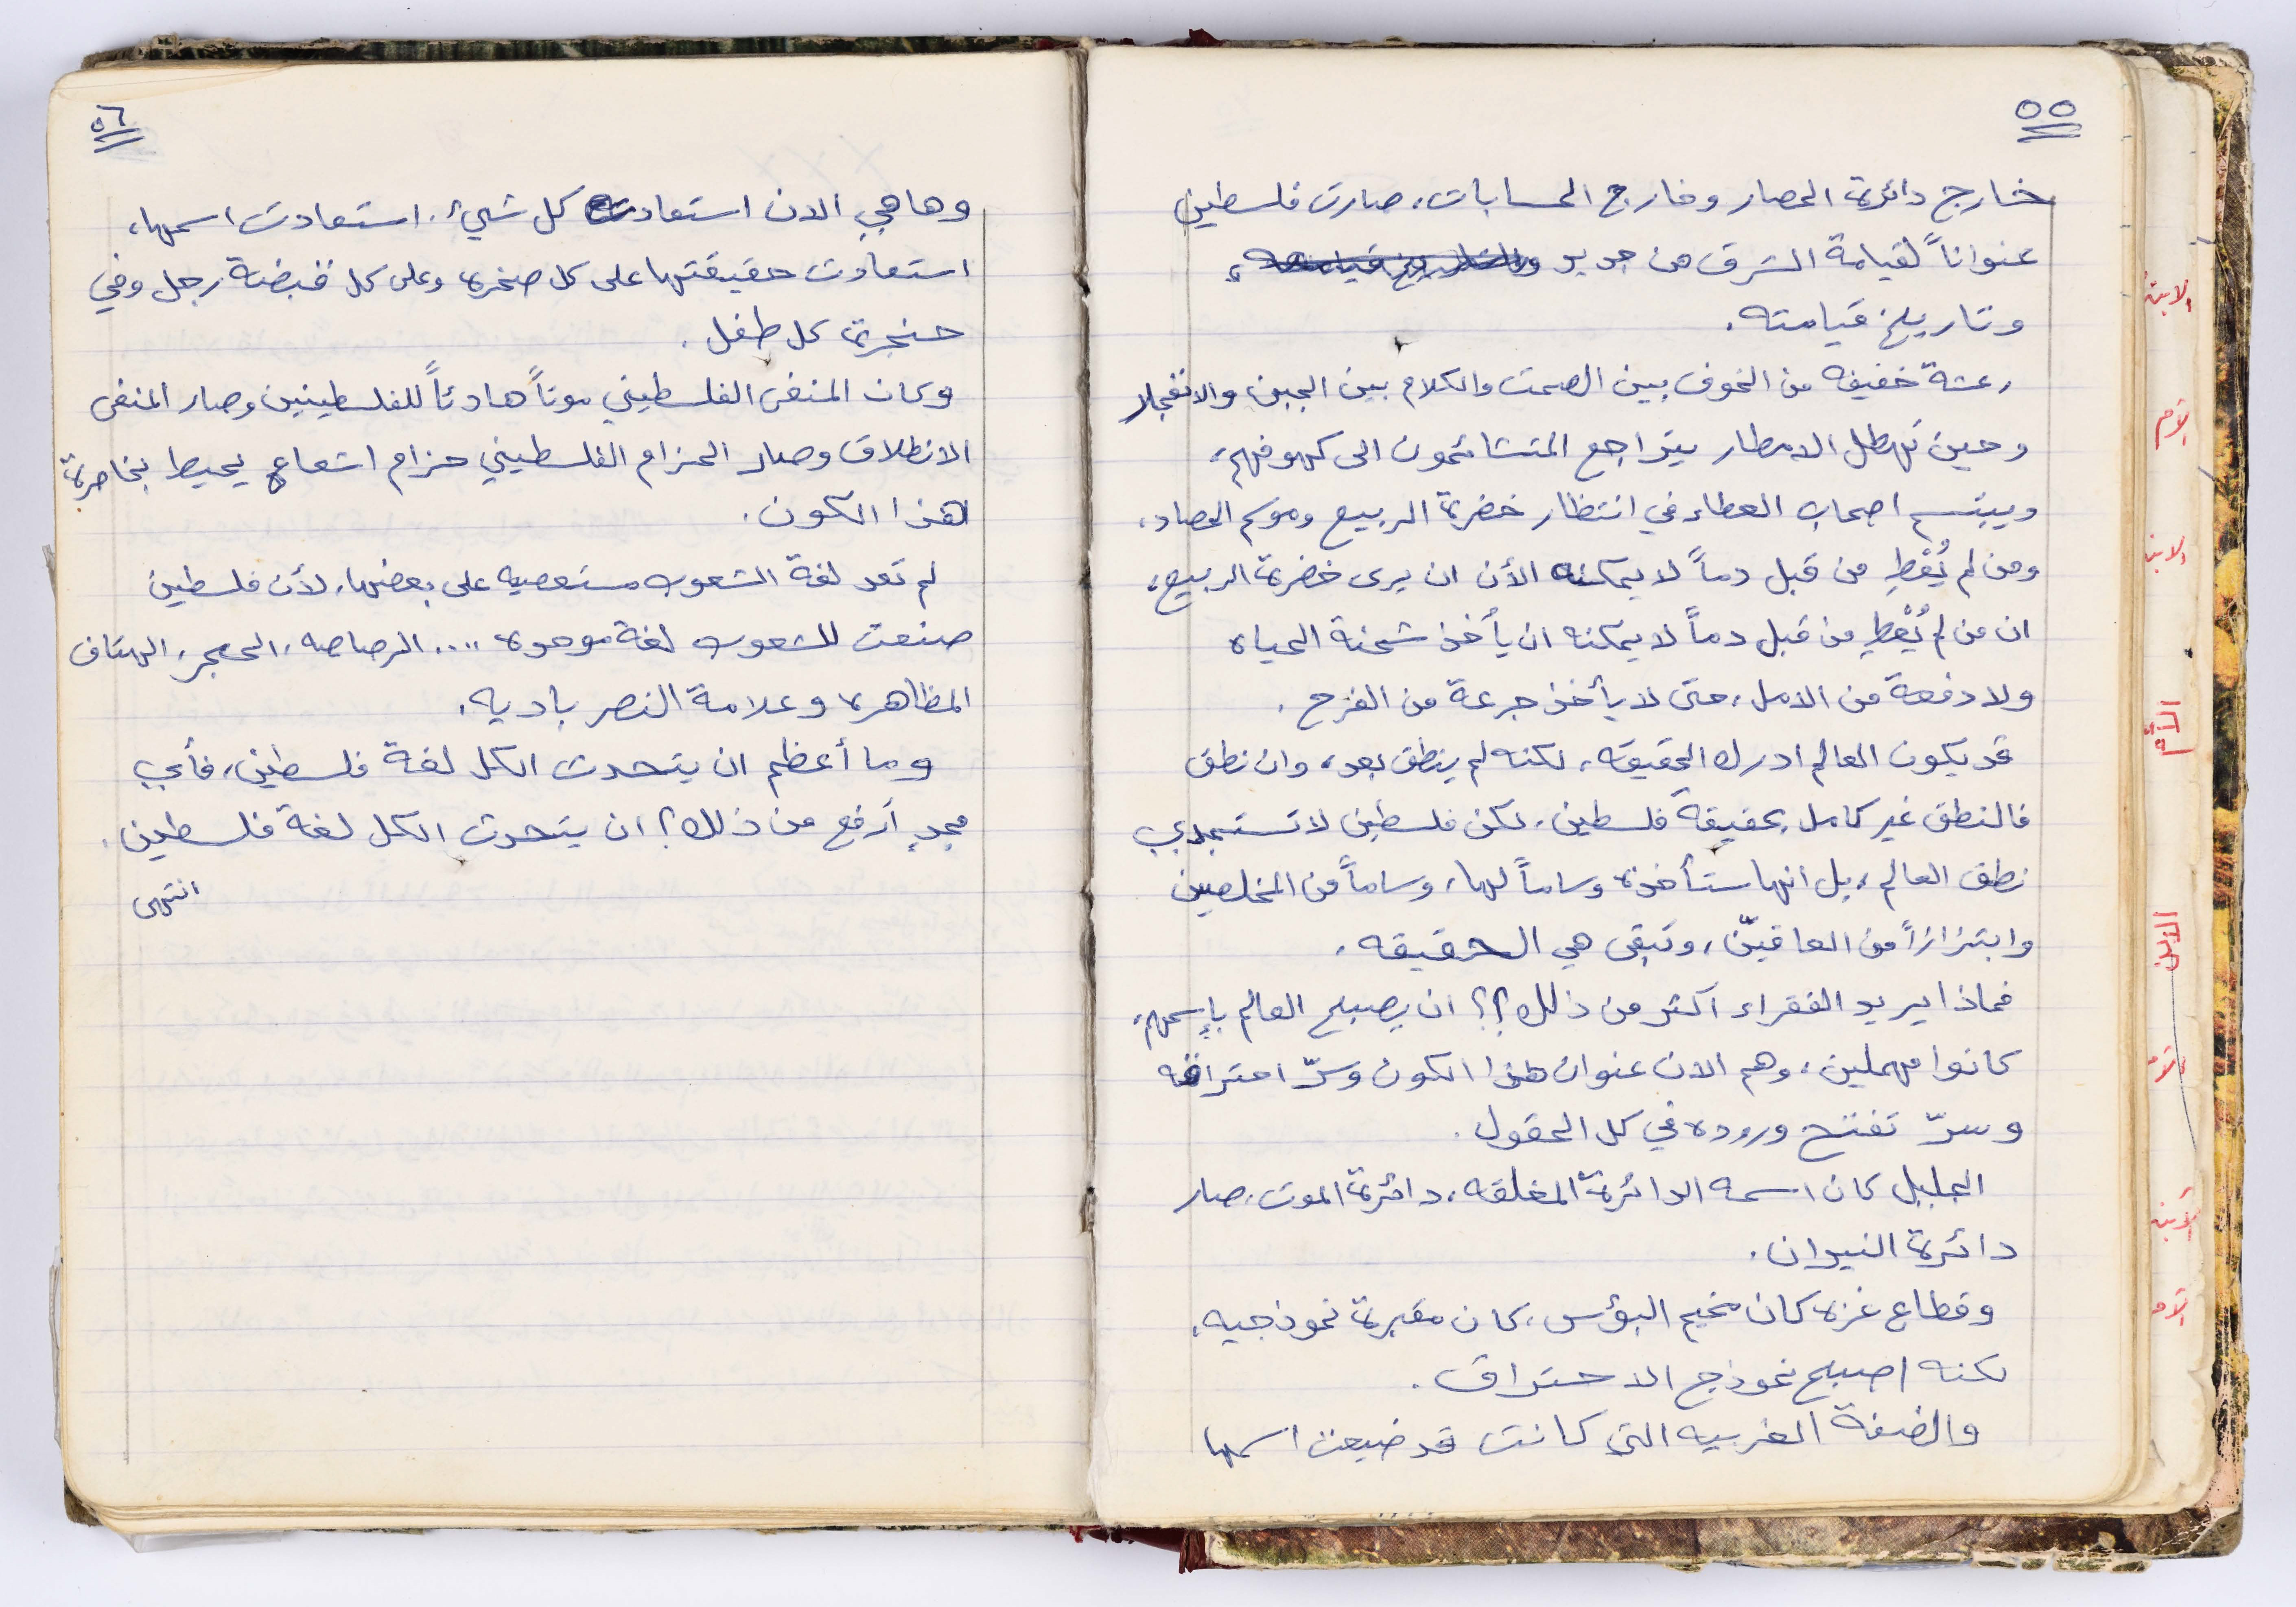 ٥٥
خارج دائرة الحصار وخارج الحسابات، صارت فلسطين
عنواناً لقيامة الشرق من جديد
وتاريخ قيامته.
رعشة خفيفه من الخوف بين الصمت والكلام بين الجبن والانفجار
وحين تهطل الامطار يتراجع المتشائمون الى كهوفهم،
ويبتسم اصحاب العطاء في انتظار خضرة الربيع وموسم الحصاد،
ومن لم يُعْطِ من قبل دماً لا يمكنه الأن ان يرى خضرة الربيع،
ان من لم يُعْطِ من قبل دماً لا يمكنه ان يأخذ شحنة الحياه
ولا دفعة من الامل، حتى لا يأخذ جرعة من الفرح.
قد يكون العالم ادرك الحقيقه، لكنه لم ينطق بعد، وان نطق
فالنطق غير كامل بحقيقة فلسطين، لكن فلسطين لا تستجدي
نطق العالم، بل انها ستأخذه وساماً لها، وساماً من المخلصين
وابتزازاً من العاقيّن، وتبقى هي الحقيقه.
فماذا يريد الفقراء أكثر من ذلك؟؟ ان يصبح العالم بإسمهم،
كانوا مهملين، وهم الان عنوان هذا الكون وسرّ احتراقه
وسرّ تفتح وروده في كل الحقول.
الجليل كان اسمه الدائرة المغلقه، دائرة الموت، صار
دائرة النيران.
وقطاع غزه كان مخيم البؤس، كان مقبرة نموذجيه،
لكنه اصبح نموذج الاحتراق.
والضفة الغربيه التي كانت قد ضيعت اسمها
٥٦
وها هي الان استعادت كل شيء. استعادت اسمها،
استعادت حقيقتها على كل صخره وعلى كل قبضة رجل وفي
حنجرة كل طفل.
وكان المنفى الفلسطيني موتاً هادئاً للفلسطينين وصار المنفى
الانطلاق وصار الحزام الفلسطيني حزام اشعاع يحيط بخاصرة
هذا الكون.
لم تعد لغة الشعوب مستعصيه على بعضها، لأن فلسطين
صنعت للشعوب لغة موحده .... الرصاصه، الحجر، الهتاف
المظاهره وعلامة النصر باديه.
وما أعظم ان يتحدث الكل لغة فلسطين، فأي
مجدٍ أرفع من ذلك؟ ان يتحدث الكل لغة فلسطين.
انتهى